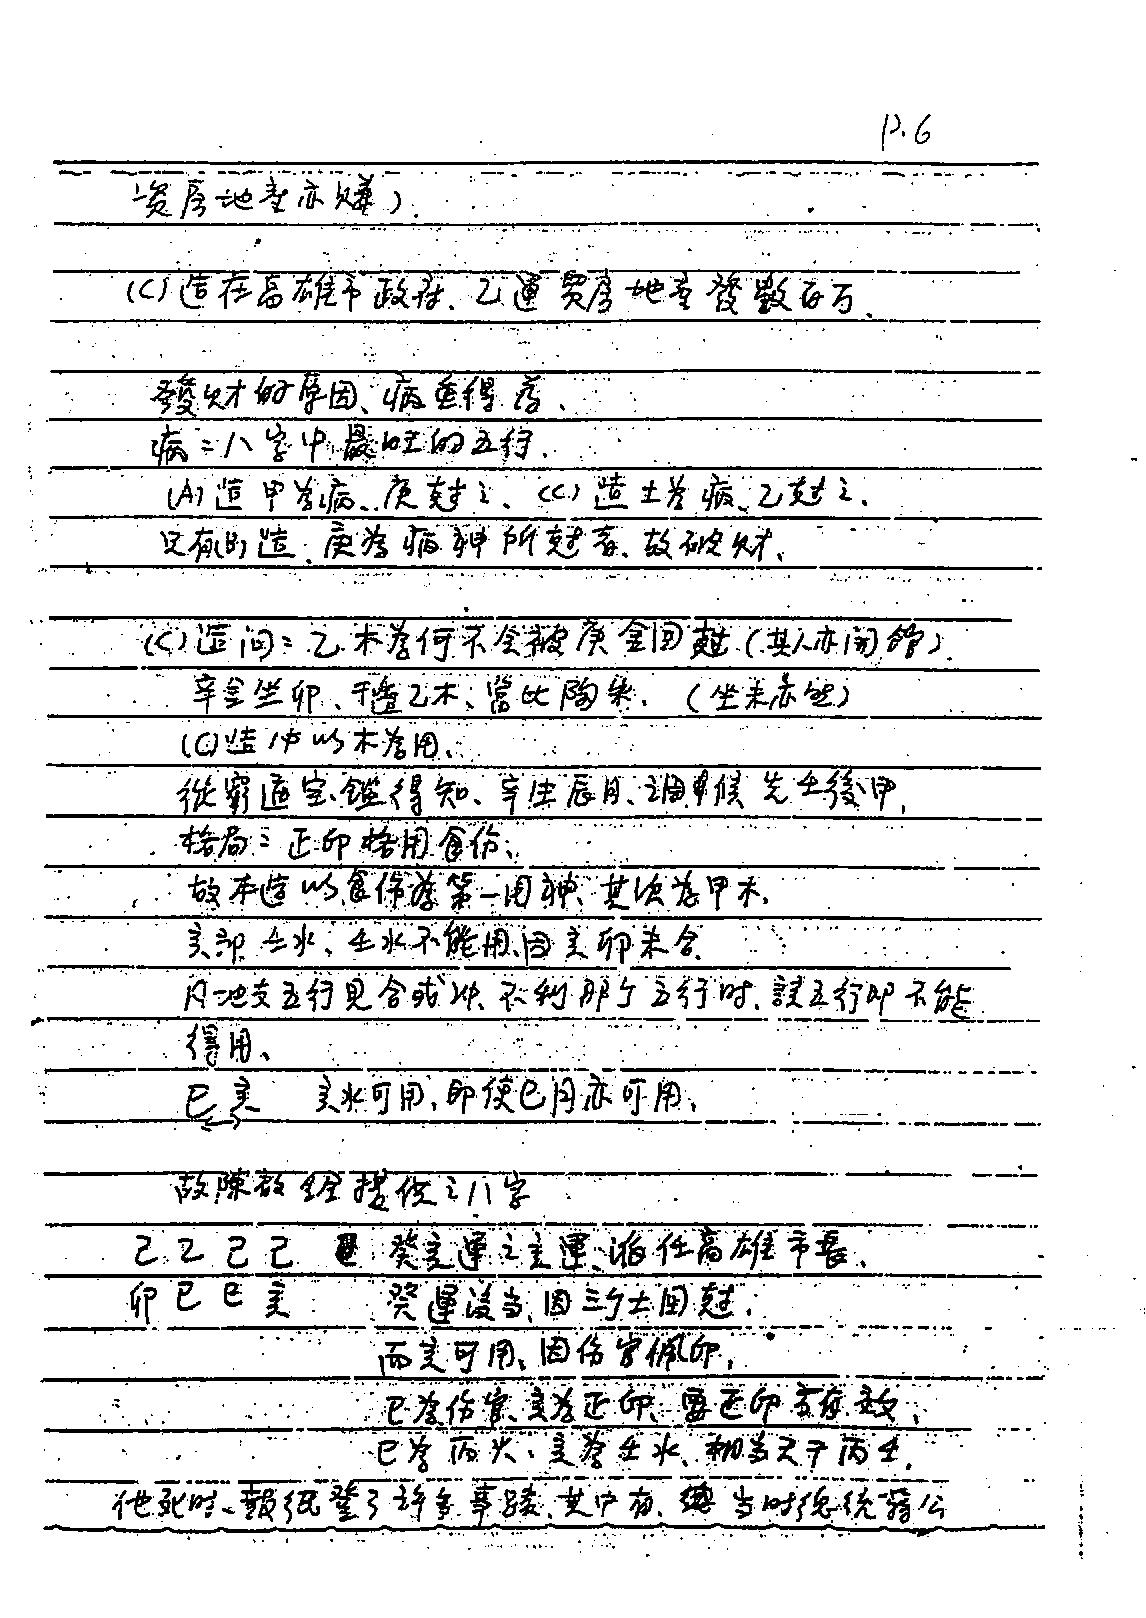 P.6
資房地產亦賺).
(C)造在高雄市政府、乙運買房地產發數百万.
發財的原因、病重得葯、
病:八字中最旺的五行.
(A)造甲為病、庚尅之、(C)造土為病、乙尅之.
只有(B)造、庚為病神所尅者、故破財、
(C)造问:乙木為何不会被庚金回尅(其人亦闹窮).
辛金坐卯、干透乙木、當比陶朱.(坐未亦然)
(C)造中以木為用、
從窮通宝鑑得知、辛生辰月、調候先壬後甲,
格局:正印格用食伤、
故本造以食傷為第一用神、其次為甲木.
亥卯 壬水、壬水不能用、因亥卯未合
凡地支五行见合或冲、不利那个五行时、該五行即不能
得用、
巳亥 亥水可用、即使巳月亦可用、
故陳啟全提供之八字
己乙己己 癸亥運之亥運、派任高雄市長、
卯巳巳亥 癸運没当、因三个土回尅.
而亥可用、因伤官佩印,
巳為伤官、亥為正印、要正印方有效、
巳為丙火、亥為壬水、相当天干丙壬.
他死时、報纸登了許多事蹟、其中有、當时总统蔣公